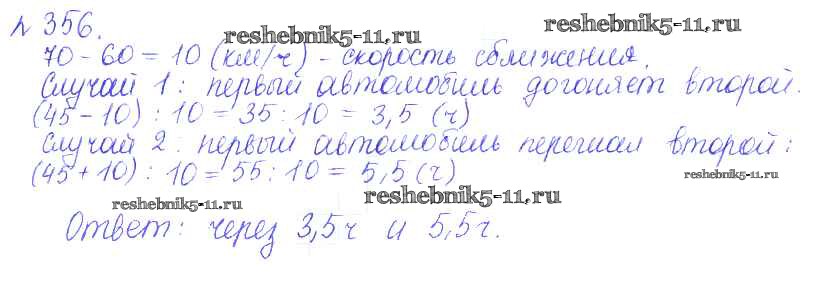 № 356.
reshebnik5-11.ru
reshebnik5-11.ru
70 - 60 = 10 (км/ч) - скорость сближения.
Случай 1: первый автомобиль догоняет второй.
(45 - 10) : 10 = 35 : 10 = 3,5 (ч)
Случай 2: первый автомобиль перегнал второй:
(45 + 10) : 10 = 55 : 10 = 5,5 (ч)
reshebnik5-11.ru
reshebnik5-11.ru
reshebnik5-11.ru
Ответ: через 3,5ч и 5,5ч.